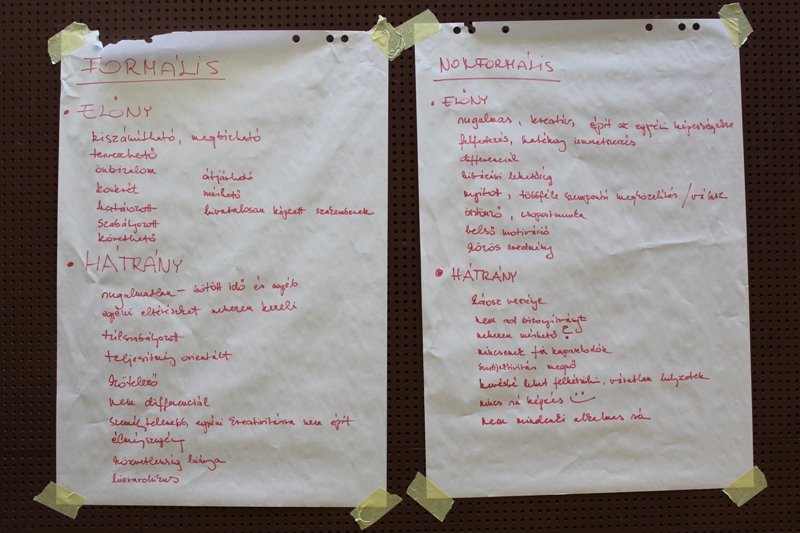 FORMÁLIS
• ELŐNY
kiszámítható, megbízható
tervezhető
önbizalom átjárható
konkrét mérhető
határozott hivatalosan képzett szakemberek
szabályozott
követhető
• HÁTRÁNY
rugalmatlan – kötött idő és egyéb
egyéni eltéréseket nehezen kezeli
túlszabályozott
teljesítmény orientált
kötelező
nem differenciál
személytelenebb, egyéni kreativitásra nem épít
élményszegény
közvetlenség hiánya
hierarchikus
NONFORMÁLIS
• ELŐNY
rugalmas, kreatív, épít az egyéni képességekre
felfedezés, hatékony ismeretszerzés
differenciál
hibázási lehetőség
nyitott, többféle szempontú megközelítés / válasz
öntörő, csoportmunka
belső motiváció
közös eredmény
• HÁTRÁNY
káosz veszélye
nem ad bizonyítványt
nehezen mérhető ?
nincsenek fix kapaszkodók
szubjektivitás megnő
kevésbé lehet felkészülni, váratlan helyzetek
nincs rá képzés
nem mindenki alkalmas rá